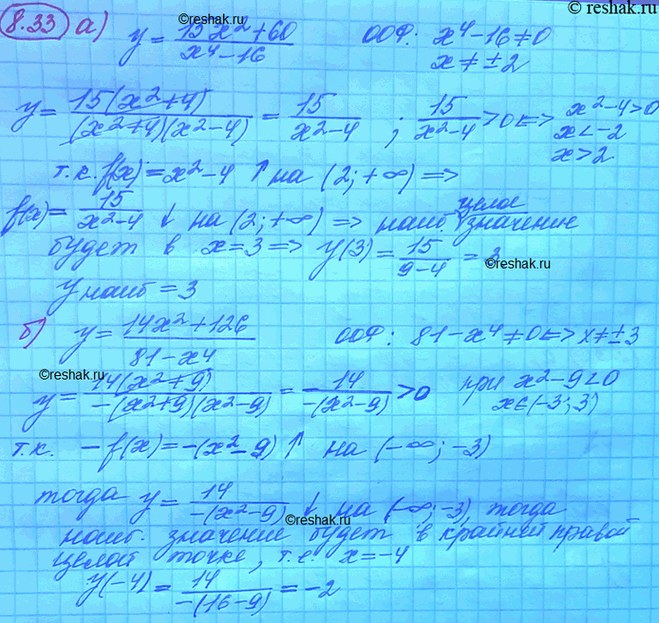 © reshak.ru
8.33 а) y = (15x²+60)/(x⁴-16) ООФ: x⁴-16≠0
x≠±2
y = 15(x²+4)/((x²+4)(x²-4)) = 15/(x²-4) ; 15/(x²-4) >0 <=> x²-4>0
x<-2
x>2
т.к. f(x)=x²-4 ↑ на (2;+∞) =>
f(x)= 15/(x²-4) ↓ на (2;+∞) => наиб. целое значение
будет в x=3 => y(3)= 15/(9-4) = 3
©reshak.ru
y наиб = 3
б) y = (14x²+126)/(81-x⁴) ООФ: 81-x⁴≠0 <=> x≠±3
©reshak.ru
y = 14(x²+9)/(-(x²+9)(x²-9)) = 14/(-(x²-9)) >0 при x²-9<0
x∈(-3;3)
т.к. -f(x)=-(x²-9) ↑ на (-∞;-3)
тогда y= 14/(-(x²-9)) ↓ на (-∞;-3), тогда
©reshak.ru
наиб. значение будет в крайней правой
целой точке, т.е. x=-4
y(-4)= 14/(-(16-9)) =-2